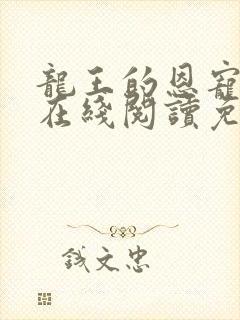 龍王的恩寵
在綫閱讀免
錢文忠